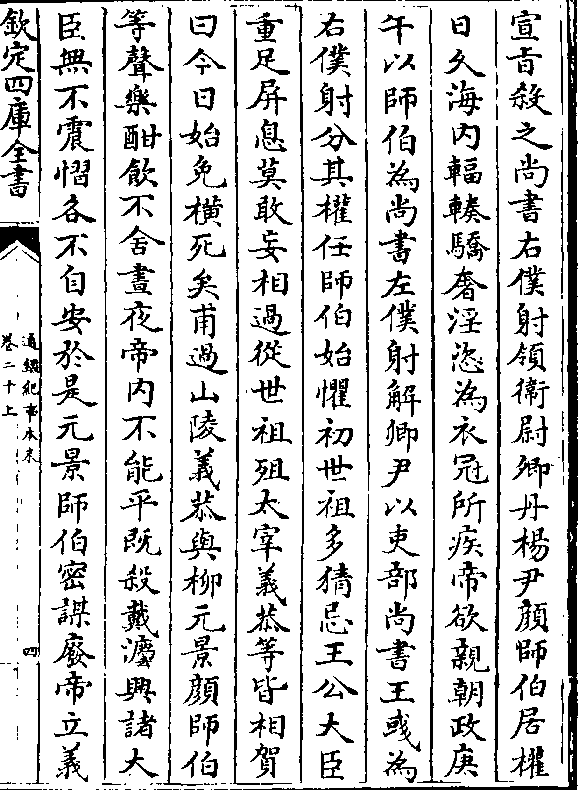 宣旨殺之尚書右僕射領衛尉卿丹楊尹顔師伯居權
日久海内輻輳驕奢淫恣為衣冠所疾帝欲親朝政庚
午以師伯為尚書左僕射解卿尹以吏部尚書王彧為
右僕射分其權任師伯始懼初世祖多猜忌王公大臣
重足屏息莫敢妄相過從世祖殂太宰義恭等皆相賀
曰今日始免橫死矣甫過山陵義恭與柳元景顔師伯
等聲樂酣飲不舍晝夜帝内不能平既殺戴灋興諸大
臣無不震慴各不自安於是元景師伯密謀廢帝立義
欽定四庫全書
通鑑紀事本末
卷二十上
四